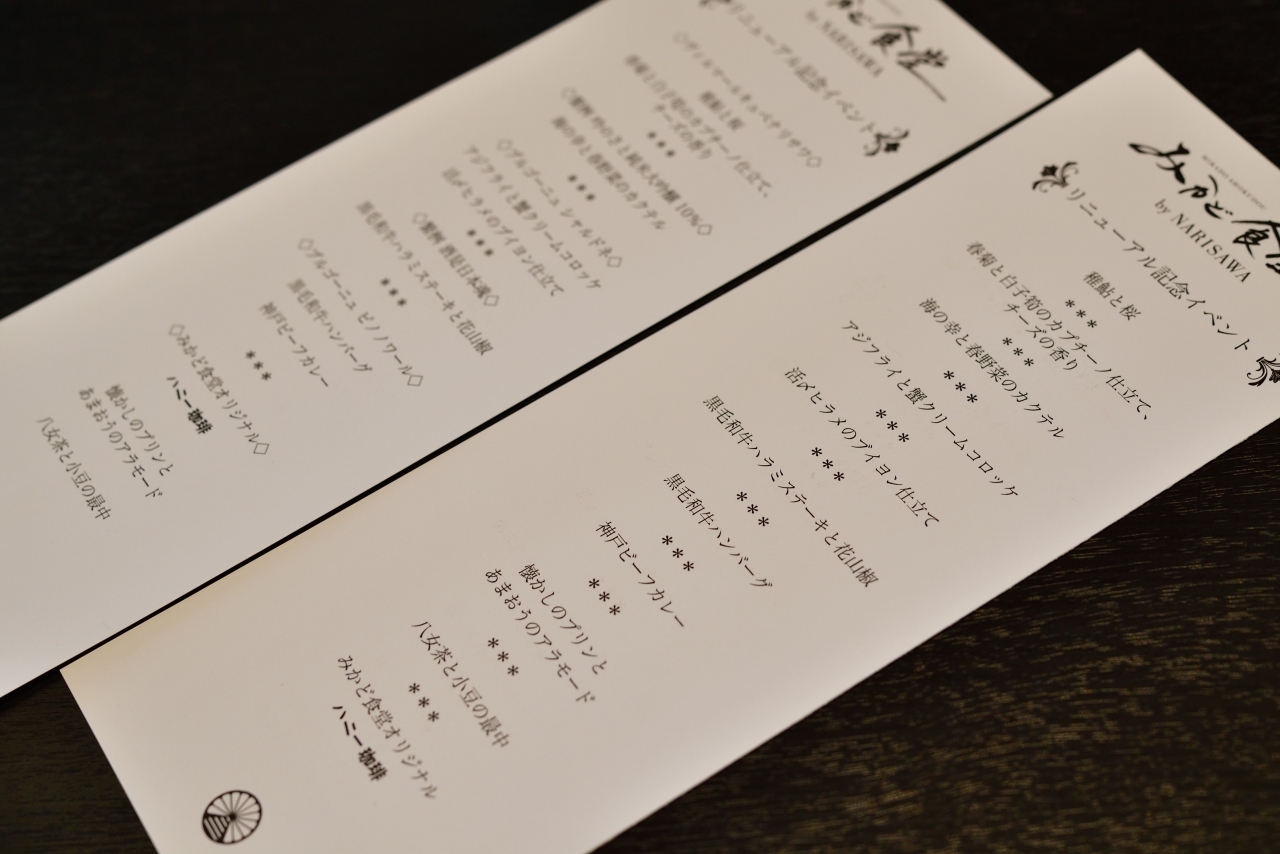 みかど食堂
by NARISAWA
リニューアル記念イベント
稚鮎と桜
***
春菊と白子筍のカプチーノ仕立て、
チーズの香り
***
海の幸と春野菜のカクテル
***
アジフライと蟹クリームコロッケ
***
活〆ヒラメのブイヨン仕立て
***
黒毛和牛ハラミステーキと花山椒
***
黒毛和牛ハンバーグ
***
神戸ビーフカレー
***
懐かしのプリンと
あまおうのアラモード
***
八女茶と小豆の最中
***
みかど食堂オリジナル
ハニー珈琲
食堂
by NARISAWA
リニューアル記念イベント
稚鮎と桜
***
春菊と白子筍のカプチーノ仕立て、
チーズの香り
***
海の幸と春野菜のカクテル
***
◇ブルゴーニュ シャルドネ◇
アジフライと蟹クリームコロッケ
活〆ヒラメのブイヨン仕立て
***
黒毛和牛ハラミステーキと花山椒
***
◇ブルゴーニュ ピノノワール◇
黒毛和牛ハンバーグ
神戸ビーフカレー
***
◇みかど食堂オリジナル◇
ハニー珈琲
懐かしのプリンと
あまおうのアラモード
八女茶と小豆の最中